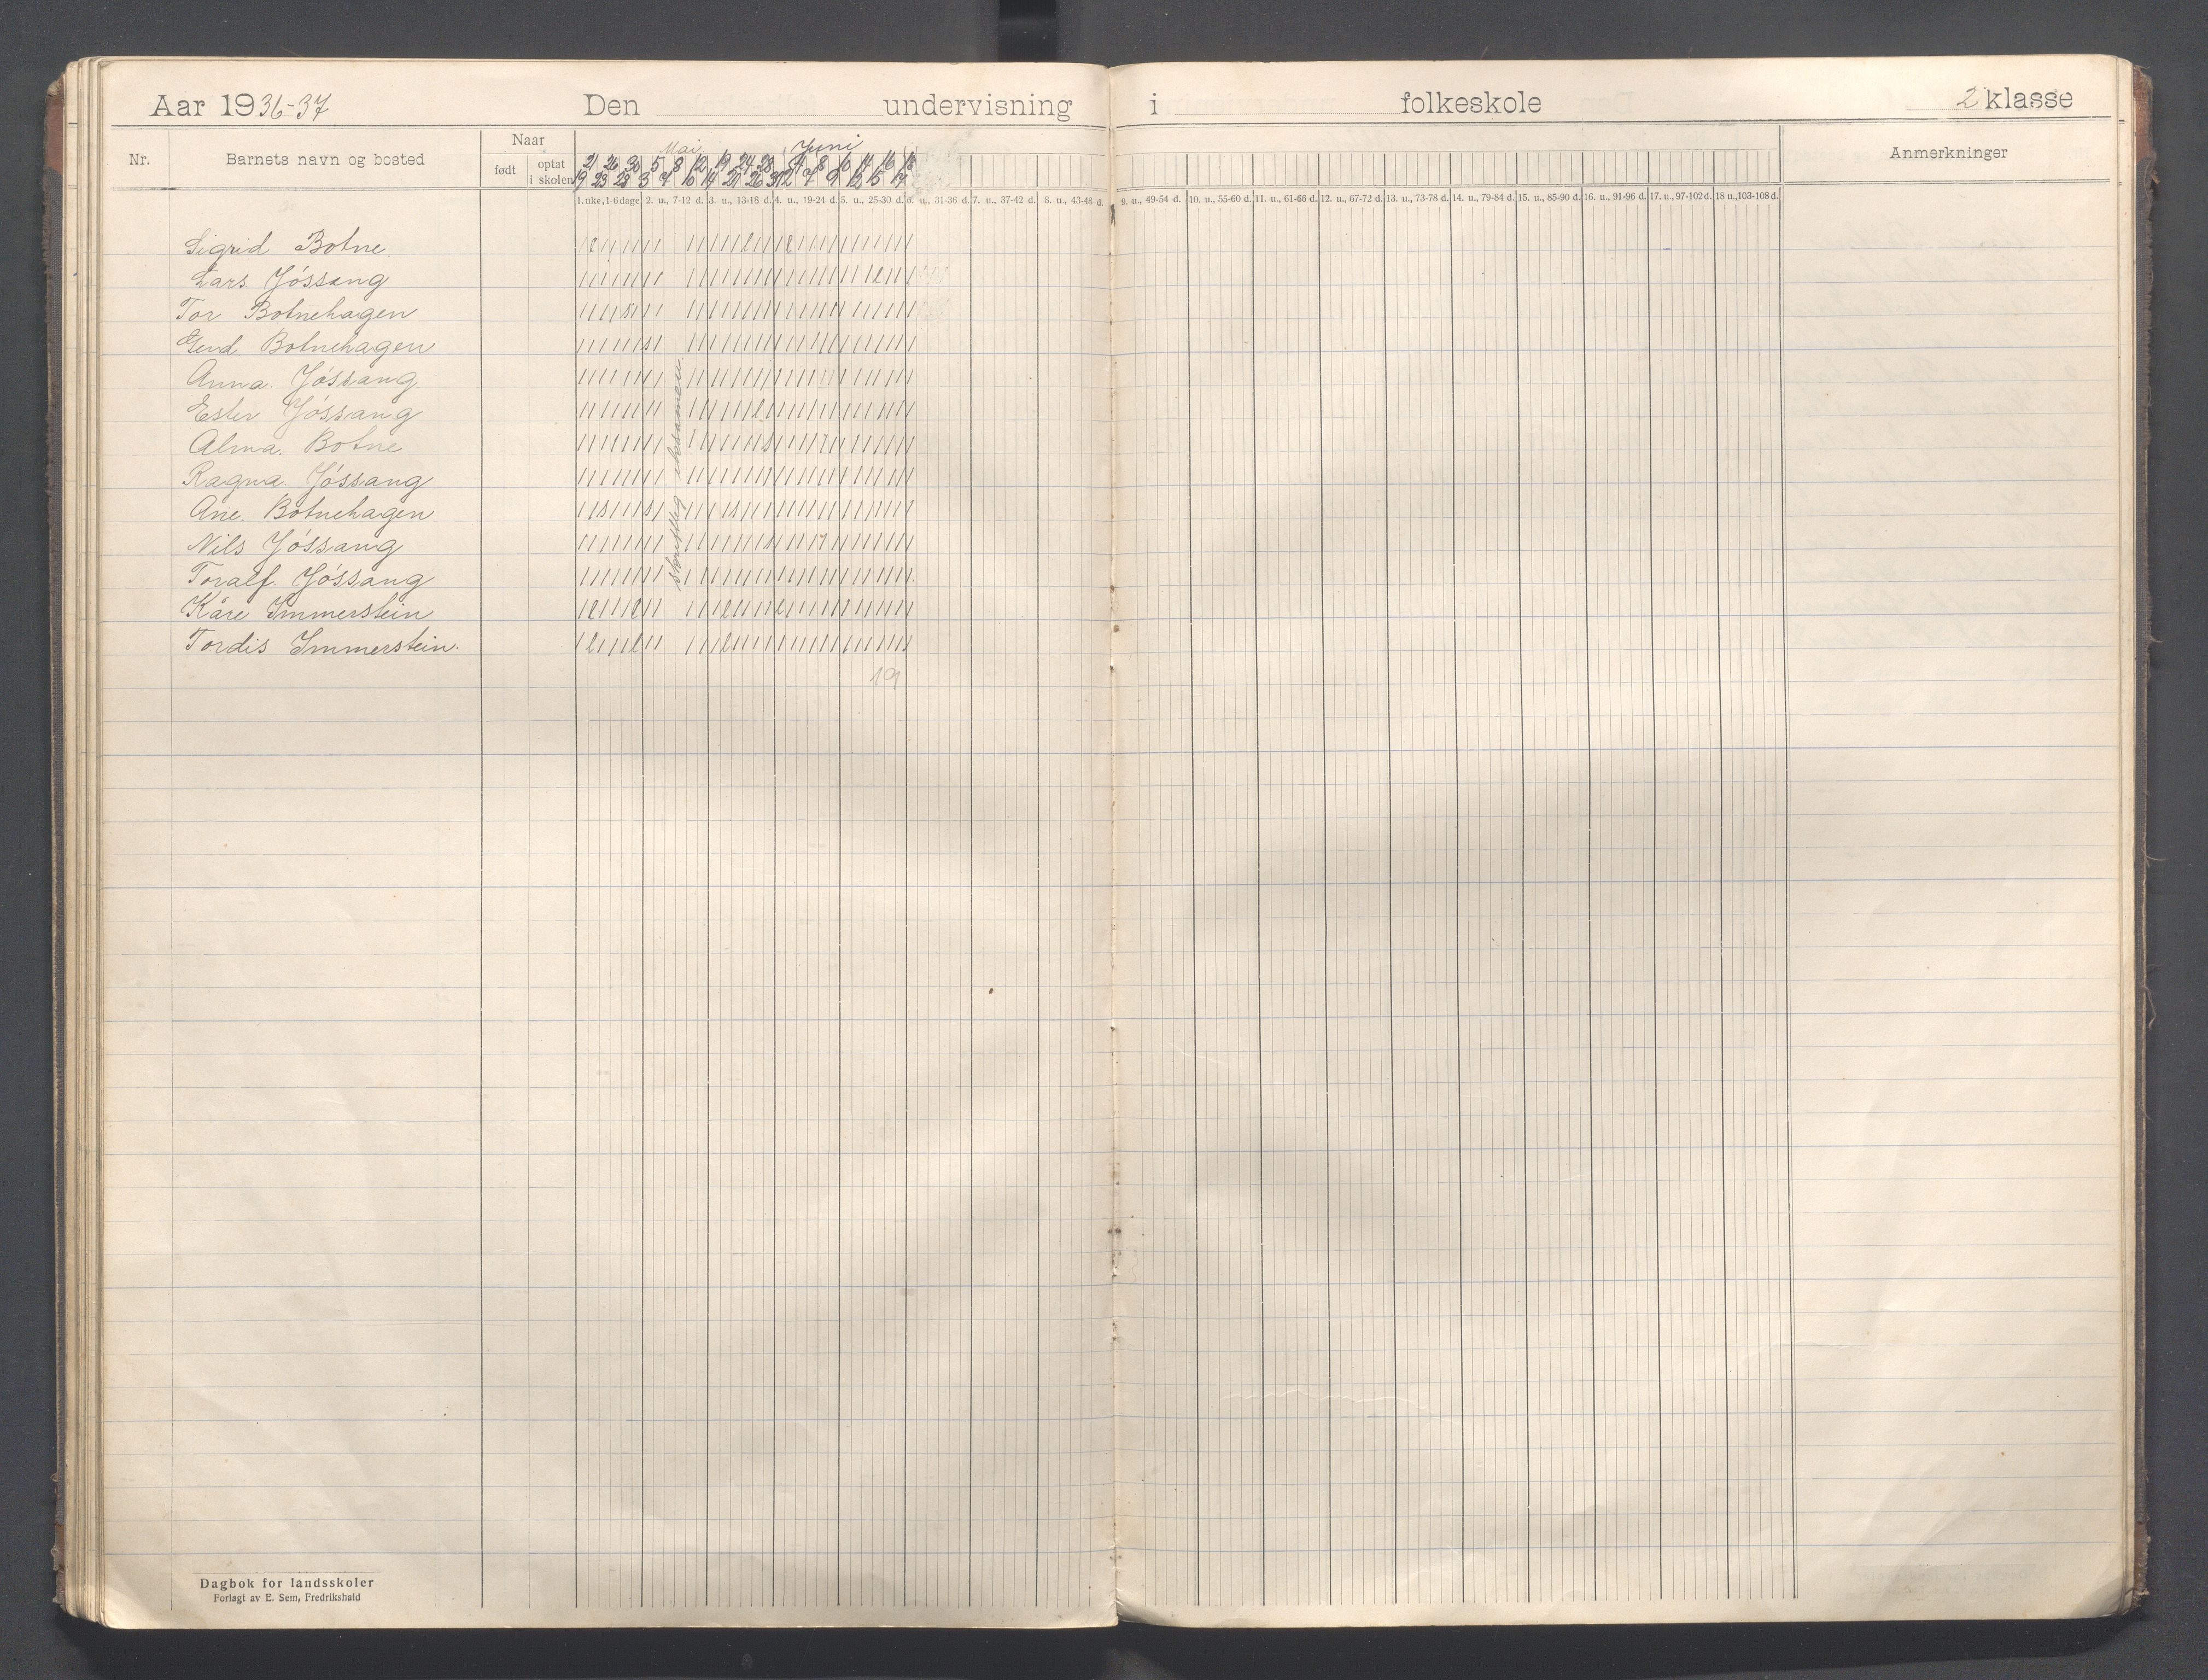 Aar 1936-37 Den undervisning i folkeskole 2 klasse
Nr. Barnets navn og bosted Naar Mai Juni Anmerkninger
født optat i skolen
21 26 30 5 8 12 19 24 28 4 8 10 14 16 18
19 23 28 3 7 10 14 21 26 31 2 7 9 12 15 17
1. uke, 1-6 dage 2. u., 7-12 d. 3. u., 13-18 d. 4. u., 19-24 d. 5. u., 25-30 d. 6. u., 31-36 d. 7. u., 37-42 d. 8. u., 43-48 d. 9. u., 49-54 d. 10. u., 55-60 d. 11. u., 61-66 d. 12. u., 67-72 d. 13. u., 73-78 d. 14. u., 79-84 d. 15. u., 85-90 d. 16. u., 91-96 d. 17. u., 97-102 d. 18 u., 103-108 d.
Sigrid Botne.
Lars Jóssang
Tor Botnehagen
Botnehagen
Anna. Jóssang
Ester Jóssang
Alma. Botne
Ragna. Jóssang
Ane. Botnehagen
Nils Jóssang
Toralf. Jóssang
Kåre Immerstein
Tordis Immerstein.
skriftleg eksamen
19
Dagbok for landsskoler
Forlagt av E. Sem, Fredrikshald